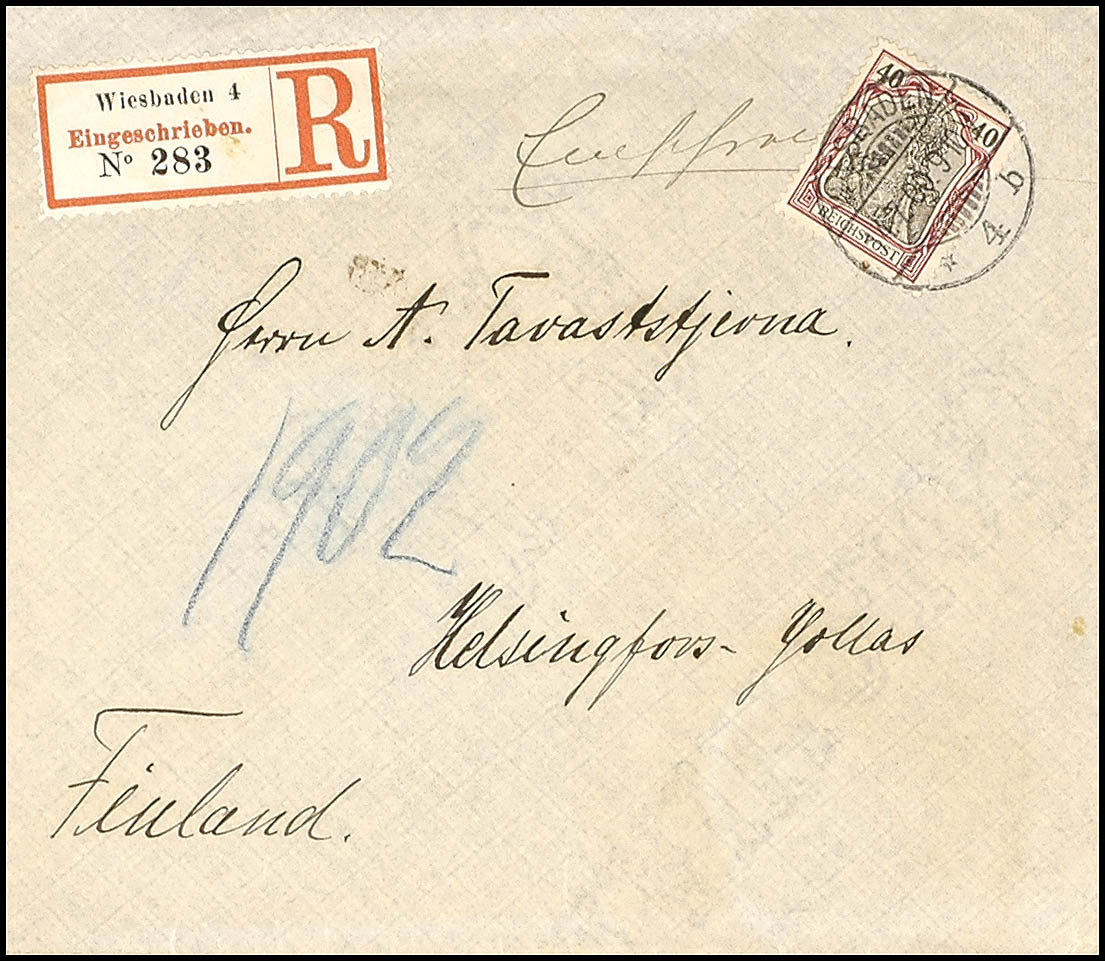 Wiesbaden 4
Eingeschrieben.
Nº 283
R
40 40
REICHSPOST
* 4 b
Herrn A. Tavaststjerna.
1902
Helsingfors- Jollas
Finland.